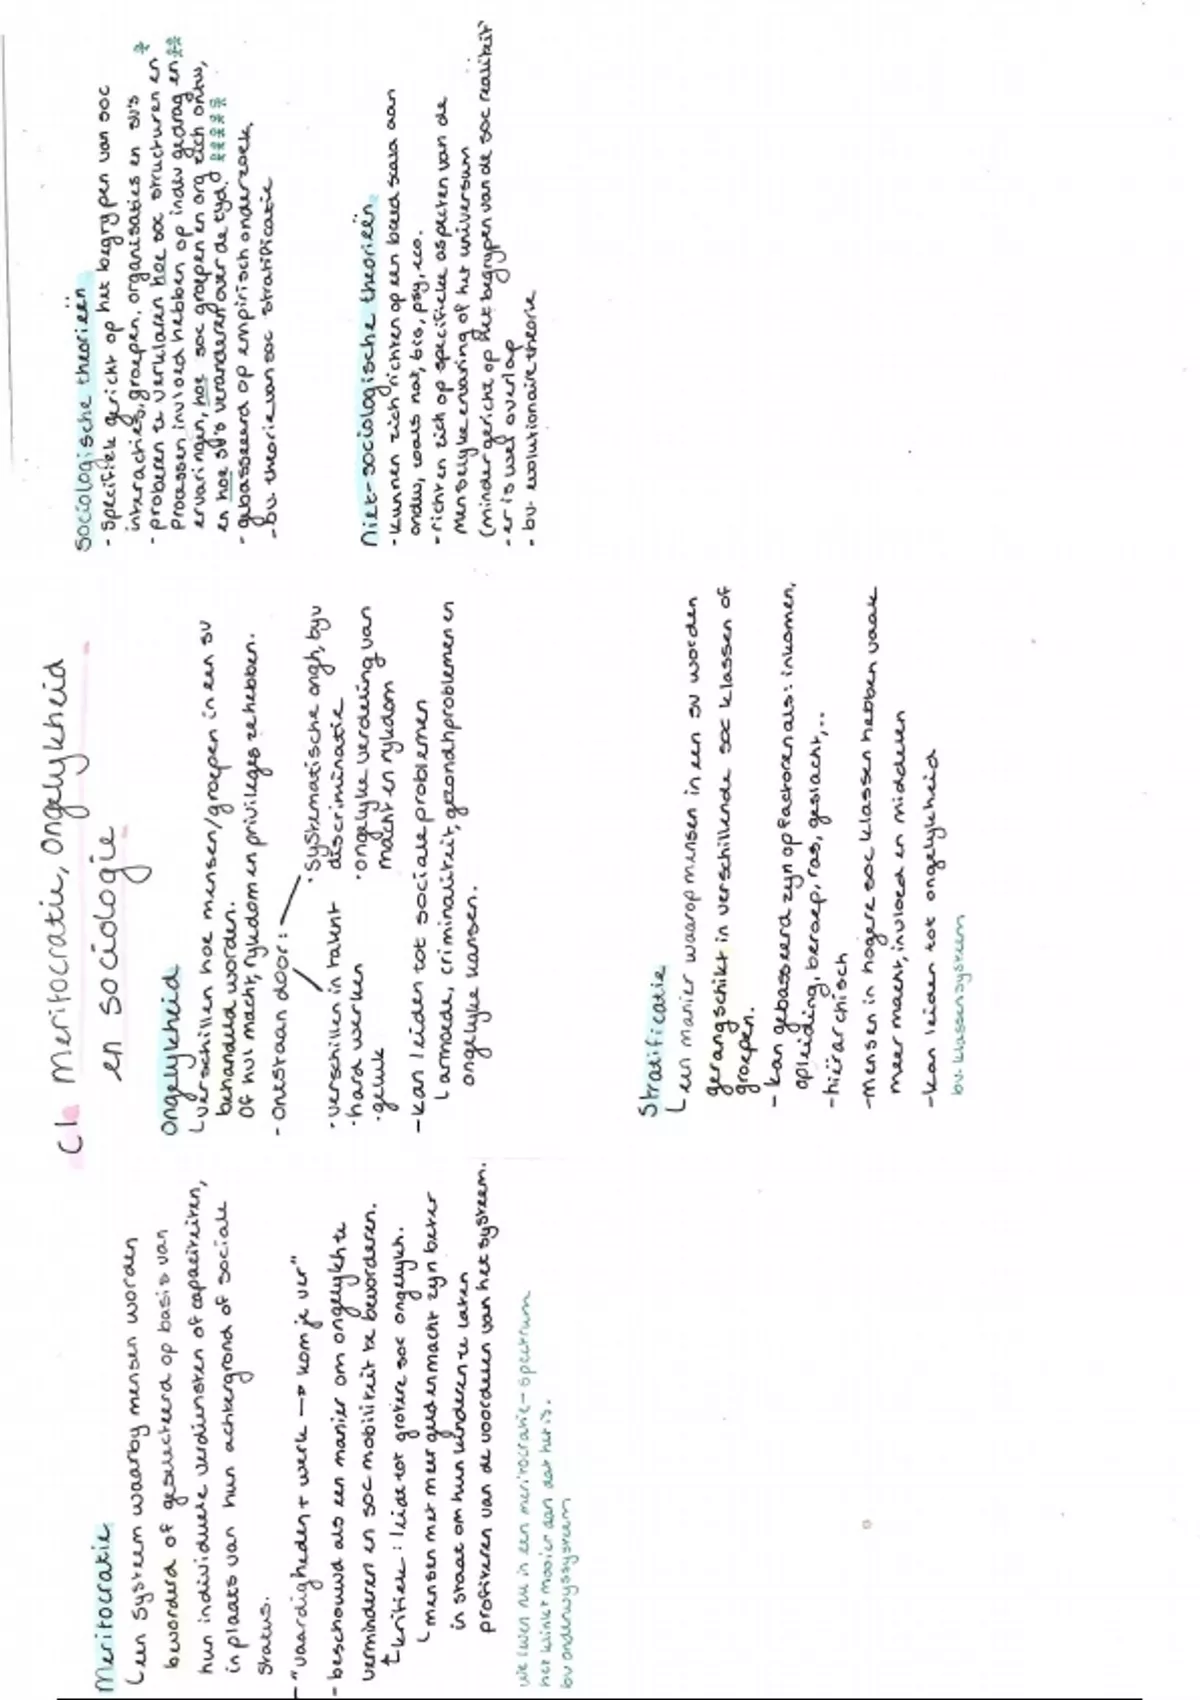 C1a Meritocratie, Ongelijkheid
en sociologie
Meritocratie
een systeem waarbij mensen worden
bevorderd of geselecteerd op basis van
hun individuele verdiensten of capaciteiten,
in plaats van hun achtergrond of sociale
status.
- "vaardigheden + werk → kom je ver"
- beschouwd als een manier om ongelijkh te
verminderen en soc mobiliteit te bevorderen.
kritiek: leidt tot grotere soc ongelijkh.
mensen met meer geld en macht zijn beter
in staat om hun kinderen te laten
profiteren van de voordelen van het systeem.
we leven nu in een meritocratie-spectrum
het klinkt mooier dan dat het is.
bv onderwijssysteem
Ongelijkheid
verschillen hoe mensen/groepen in een SV
behandeld worden.
Of hvl macht, rijkdom en privileges ze hebben.
- Ontstaan door:
· verschillen in talent
· hard werken
· geluk
· Systematische ongh, bijv
discriminatie
· ongelijke verdeling van
macht en rijkdom
- kan leiden tot sociale problemen
armoede, criminaliteit, gezondhproblemen en
ongelijke kansen.
Stratificatie
een manier waarop mensen in een SV worden
gerangschikt in verschillende soc klassen of
groepen.
- kan gebasseerd zijn op factoren als: inkomen,
opleiding, beroep, ras, geslacht,..
- hiërarchisch
- mensen in hogere soc klassen hebben vaak
meer macht, invloed en middelen
- kan leiden tot ongelijkheid
bv. klassensysteem
Sociologische theorieën
- specifiek gericht op het begrijpen van soc
interacties, groepen, organisaties en SV's
- proberen te verklaren hoe soc structuren en *
processen invloed hebben op indiv gedrag en **
ervaringen, hoe soc groepen en org zich ontw,
en hoe SV's veranderen over de tijd.
- gebasseerd op empirisch onderzoek,
- bv. theorie van soc stratificatie
Niet-sociologische theorieën
- kunnen zich richten op een breed scala aan
ondw, zoals nat, bio, psy, eco.
- richten zich op specifieke aspecten van de
menselijke ervaring of het universum
(minder gericht op het begrijpen van de soc realiteit)
- er is wel overlap
- bv. evolutionaire theorie